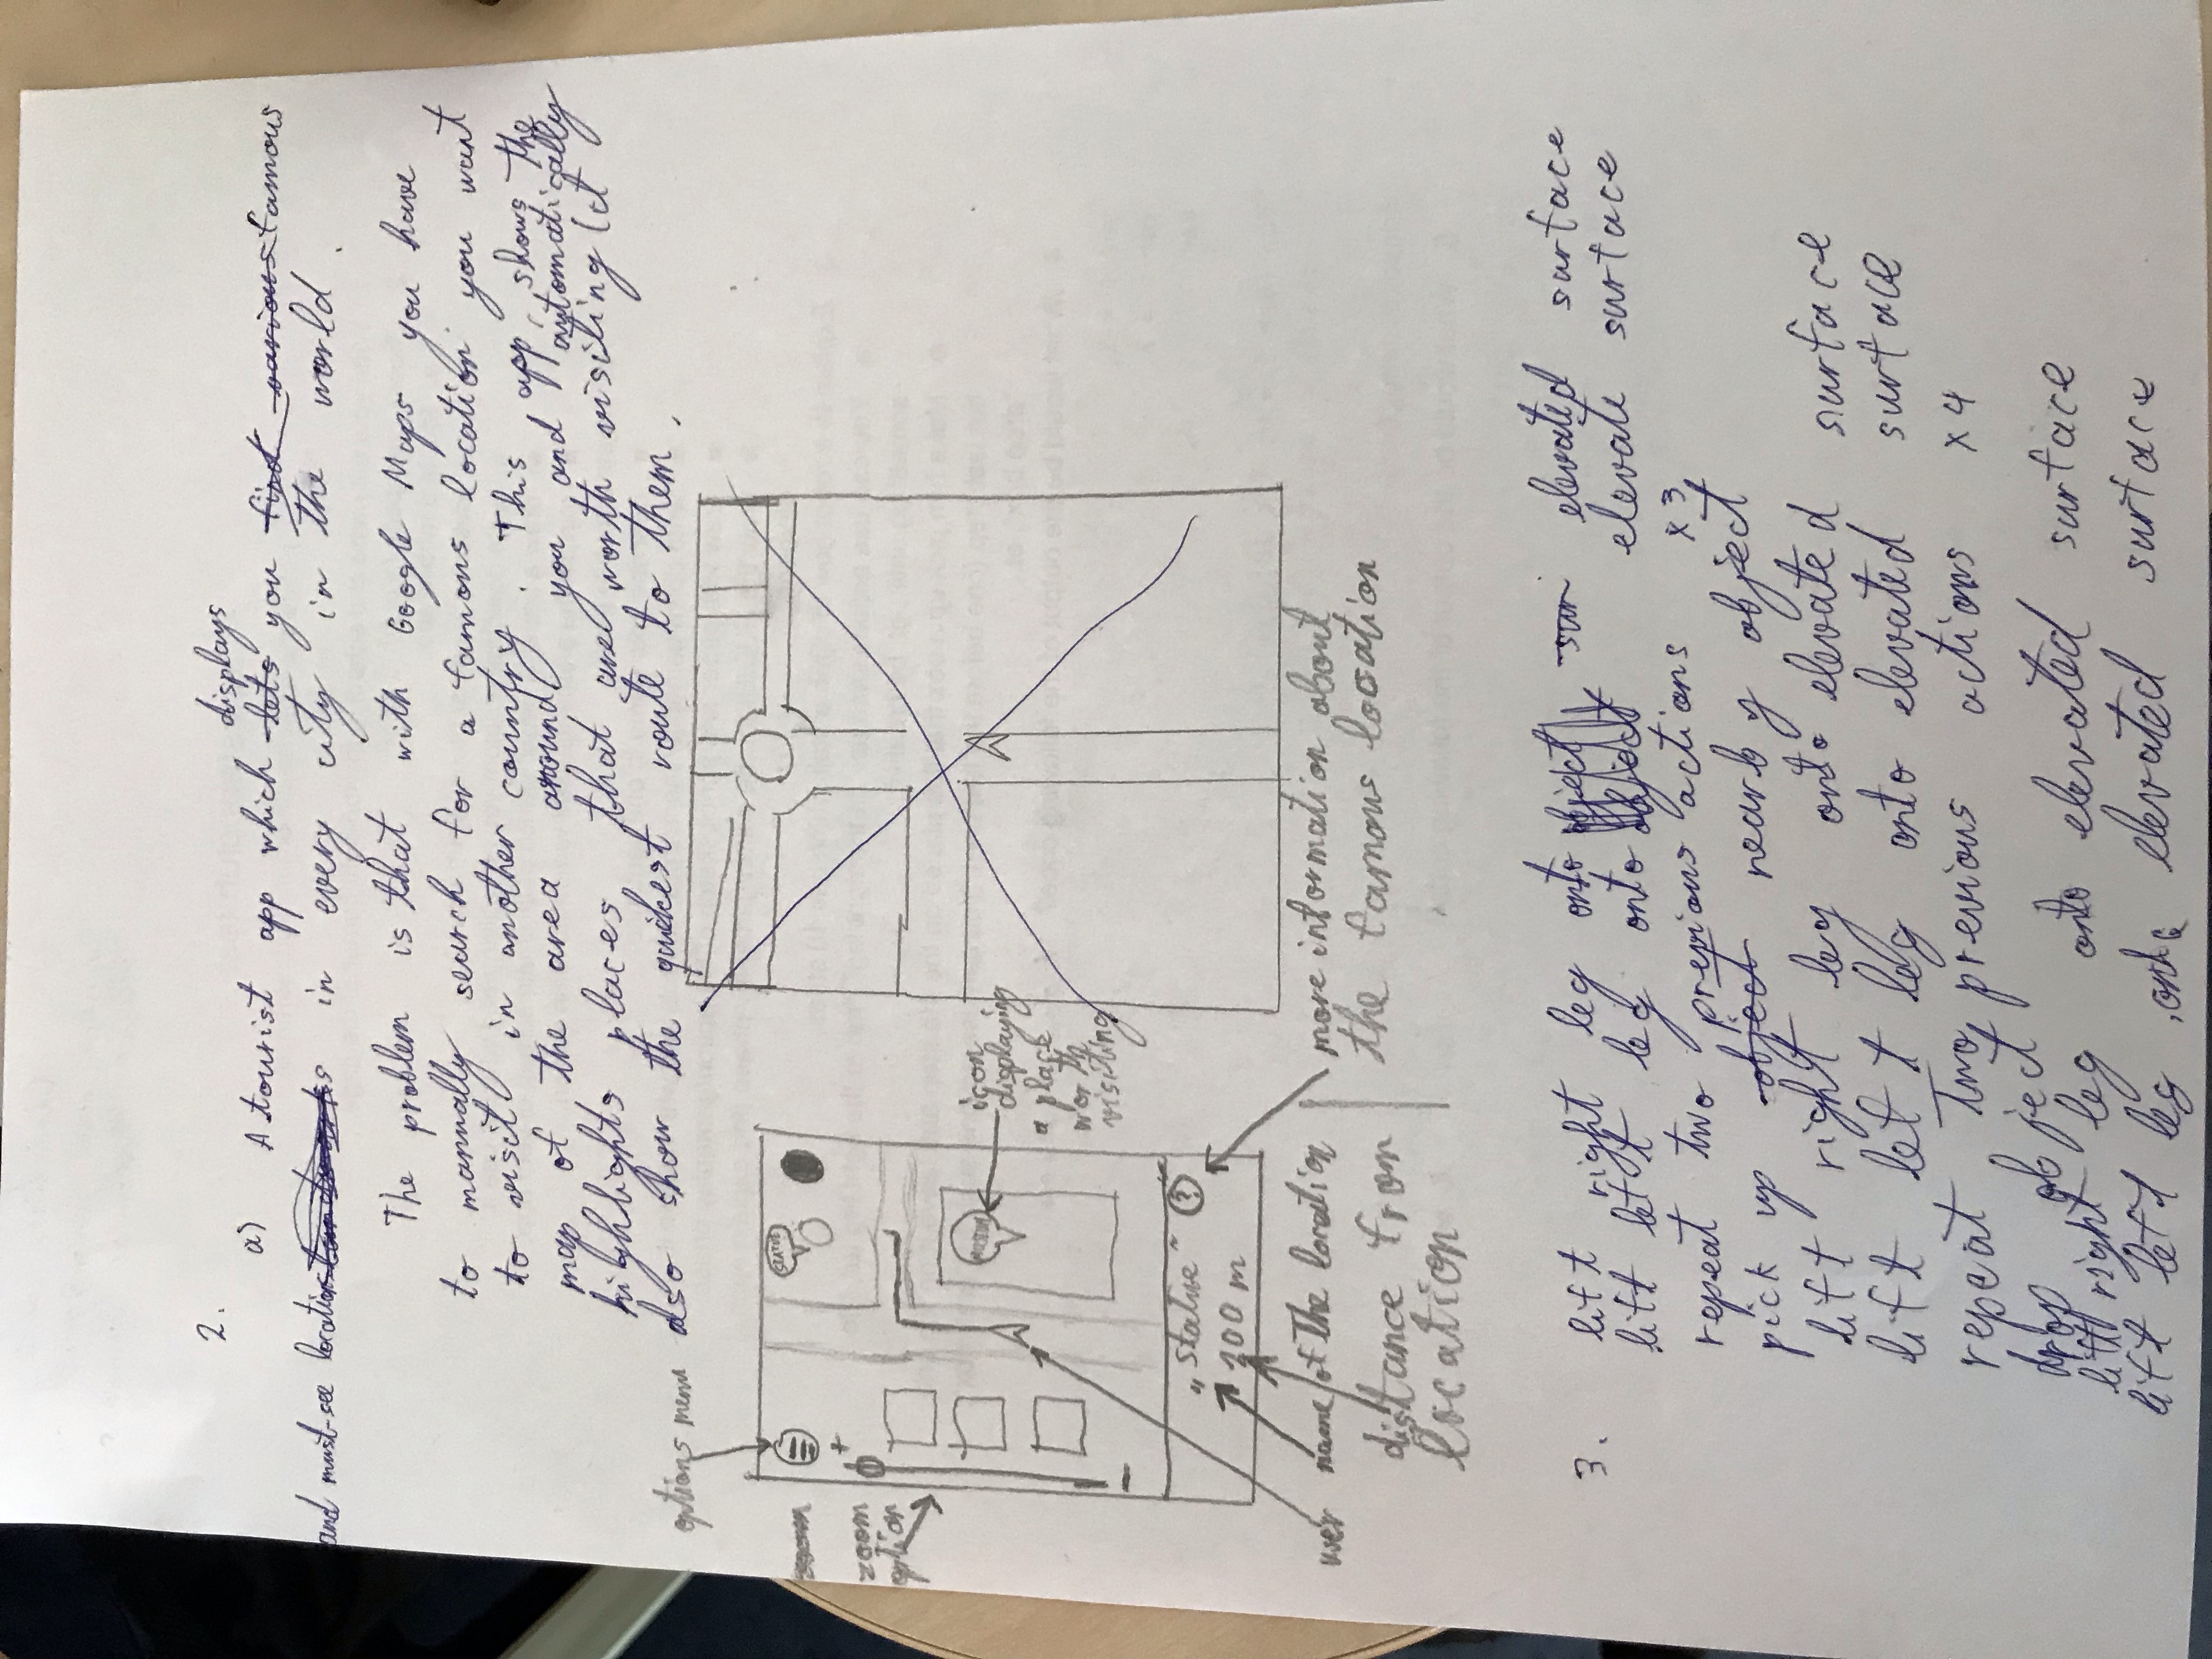 2.
displays
a) A tourist app which lets you find various famous
and must-see locations in every city in the world.
The problem is that with Google Maps you have
to manually search for a famous location you want
to visit in another country. This app, shows the
map of the area around you and automatically
highlights places that are worth visiting It
also show the quickest route to them.
options menu
zoom
zoom
option
STATUE
+
MUSEUM
icon
displaying
a place
worth
visiting
-
„Statue" ?
200 m
user name of the location
distance from
location
more information about
the famous location
3. lift right leg onto object sur elevated surface
lift left leg onto object elevate surface
repeat two previous actions x3
pick up object nearby object
lift right leg onto elevated surface
lift left leg onto elevated surface
repeat two previous actions x4
drop object
lift right leg onto elevated surface
lift left leg onto elevated surface